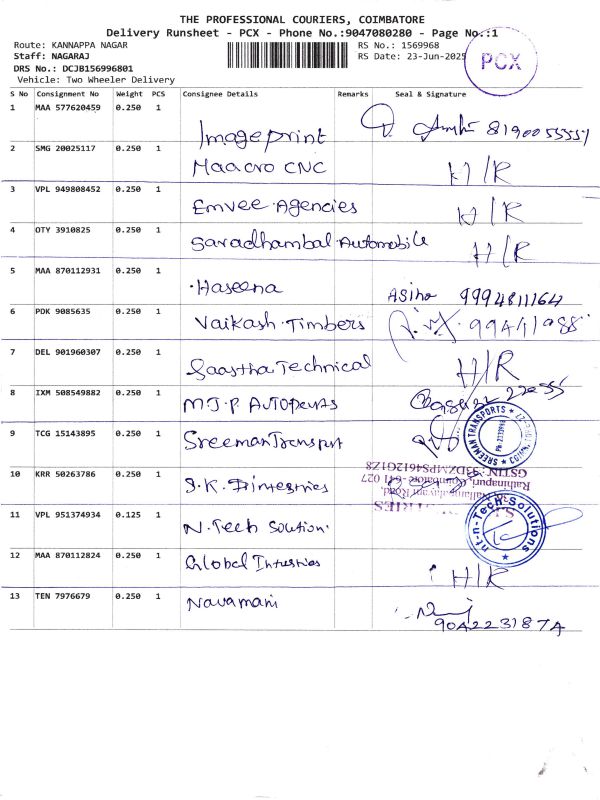 THE PROFESSIONAL COURIERS, COIMBATORE
Delivery Runsheet - PCX - Phone No.:9047080280 - Page No.:1
Route: KANNAPPA NAGAR
RS No.: 1569968
Staff: NAGARAJ
RS Date: 23-Jun-2025
PCX
DRS No.: DCJB156996801
Vehicle: Two Wheeler Delivery
S No Consignment No Weight PCS Consignee Details Remarks Seal & Signature
1 MAA 577620459 0.250 1 Imageprint
2 SMG 20025117 0.250 1 Maacro CNC H/R
3 VPL 949808452 0.250 1 Emvee Agencies H/R
4 OTY 3910825 0.250 1 Saradhambal Automobile H/R
5 MAA 870112931 0.250 1 Haseena 9994811164
6 PDK 9085635 0.250 1 Vaikash Timbers
7 DEL 901960307 0.250 1 Saastha Technical H/R
8 IXM 508549882 0.250 1 M.J.P Autoparts
9 TCG 15143895 0.250 1 Sreeman Transport
SREEMAN TRANSPORTS
10 KRR 50263786 0.250 1 S.K.
Rathinapuri, Coimbatore-641 027
GSTIN: 33DZMPS4612G1Z8
11 VPL 951374934 0.125 1 N. Tech Solution.
nt-n-Tech Solutions
12 MAA 870112824 0.250 1 Global H/R
13 TEN 7976679 0.250 1 Navamani